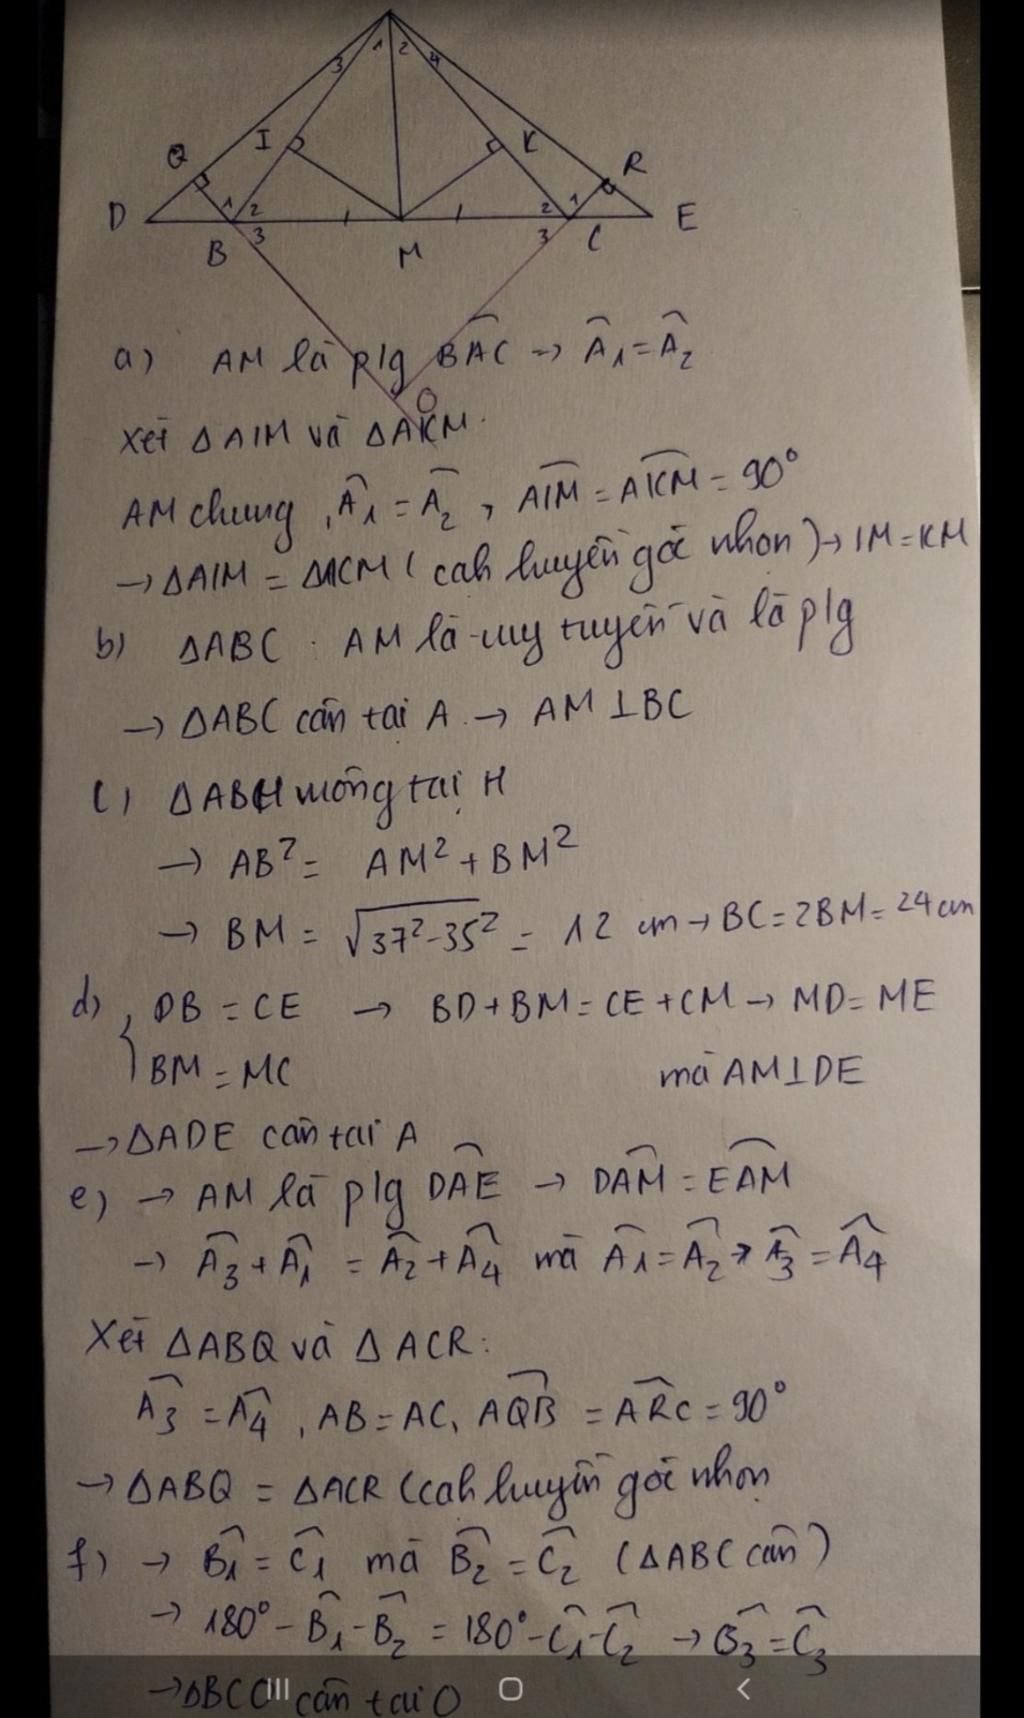 1 2
3 4
Q I K R
D 1 2 2 1 E
B 3 M 3 C
a) AM là p/g BAC → Â1 = Â2
O
xét ΔAIM và ΔAKM.
AM chung, Â1 = Â2, AIM = AKM = 90°
→ ΔAIM = ΔAKM (cah huyền góc nhọn) → IM = KM
b) ΔABC. AM là tuyến và là p/g
→ ΔABC cân tại A. → AM ⊥ BC
c) ΔABH vuông tại H
→ AB² = AM² + BM²
→ BM = √37² - 35² = 12 cm → BC = 2BM = 24 cm
d) { DB = CE → BD + BM = CE + CM → MD = ME
BM = MC mà AM ⊥ DE
→ ΔADE cân tại A
e) → AM là p/g DAE → DAM = EAM
→ Â3 + Â1 = Â2 + Â4 mà Â1 = Â2 → Â3 = Â4
Xét ΔABQ và ΔACR:
Â3 = Â4, AB = AC, AQB = ARC = 90°
→ ΔABQ = ΔACR (cah huyền góc nhọn
f) → B̂1 = Ĉ1 mà B̂2 = Ĉ2 (ΔABC cân)
→ 180° - B̂1 - B̂2 = 180° - Ĉ1 - Ĉ2 → B̂3 = Ĉ3
→ ΔBCO cân tại O